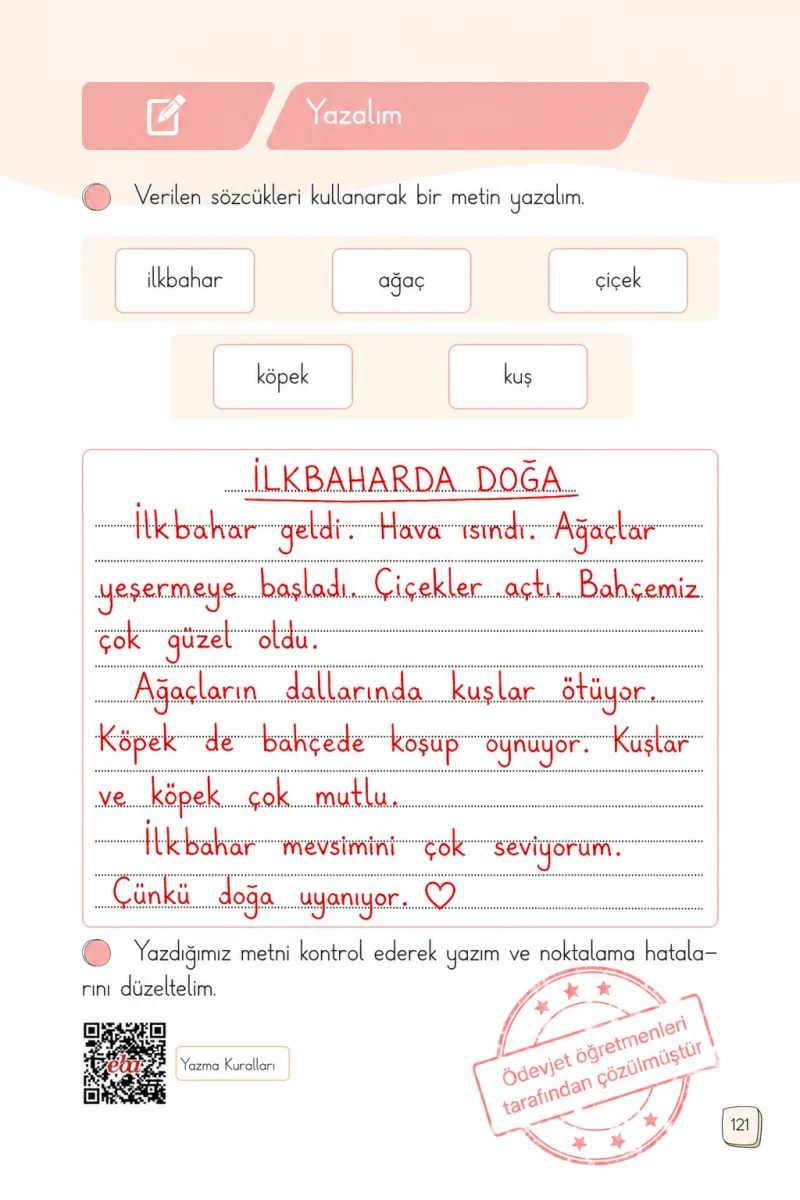 Yazalım
Verilen sözcükleri kullanarak bir metin yazalım.
ilkbahar
ağaç
çiçek
köpek
kuş
İLKBAHARDA DOĞA
İlkbahar geldi. Hava ısındı. Ağaçlar
yeşermeye başladı. Çiçekler açtı. Bahçemiz
çok güzel oldu.
Ağaçların dallarında kuşlar ötüyor.
Köpek de bahçede koşup oynuyor. Kuşlar
ve köpek çok mutlu.
İlkbahar mevsimini çok seviyorum.
Çünkü doğa uyanıyor.
Yazdığımız metni kontrol ederek yazım ve noktalama hatala-
rını düzeltelim.
eba
Yazma Kuralları
Ödevjet öğretmenleri
tarafından çözülmüştür
121